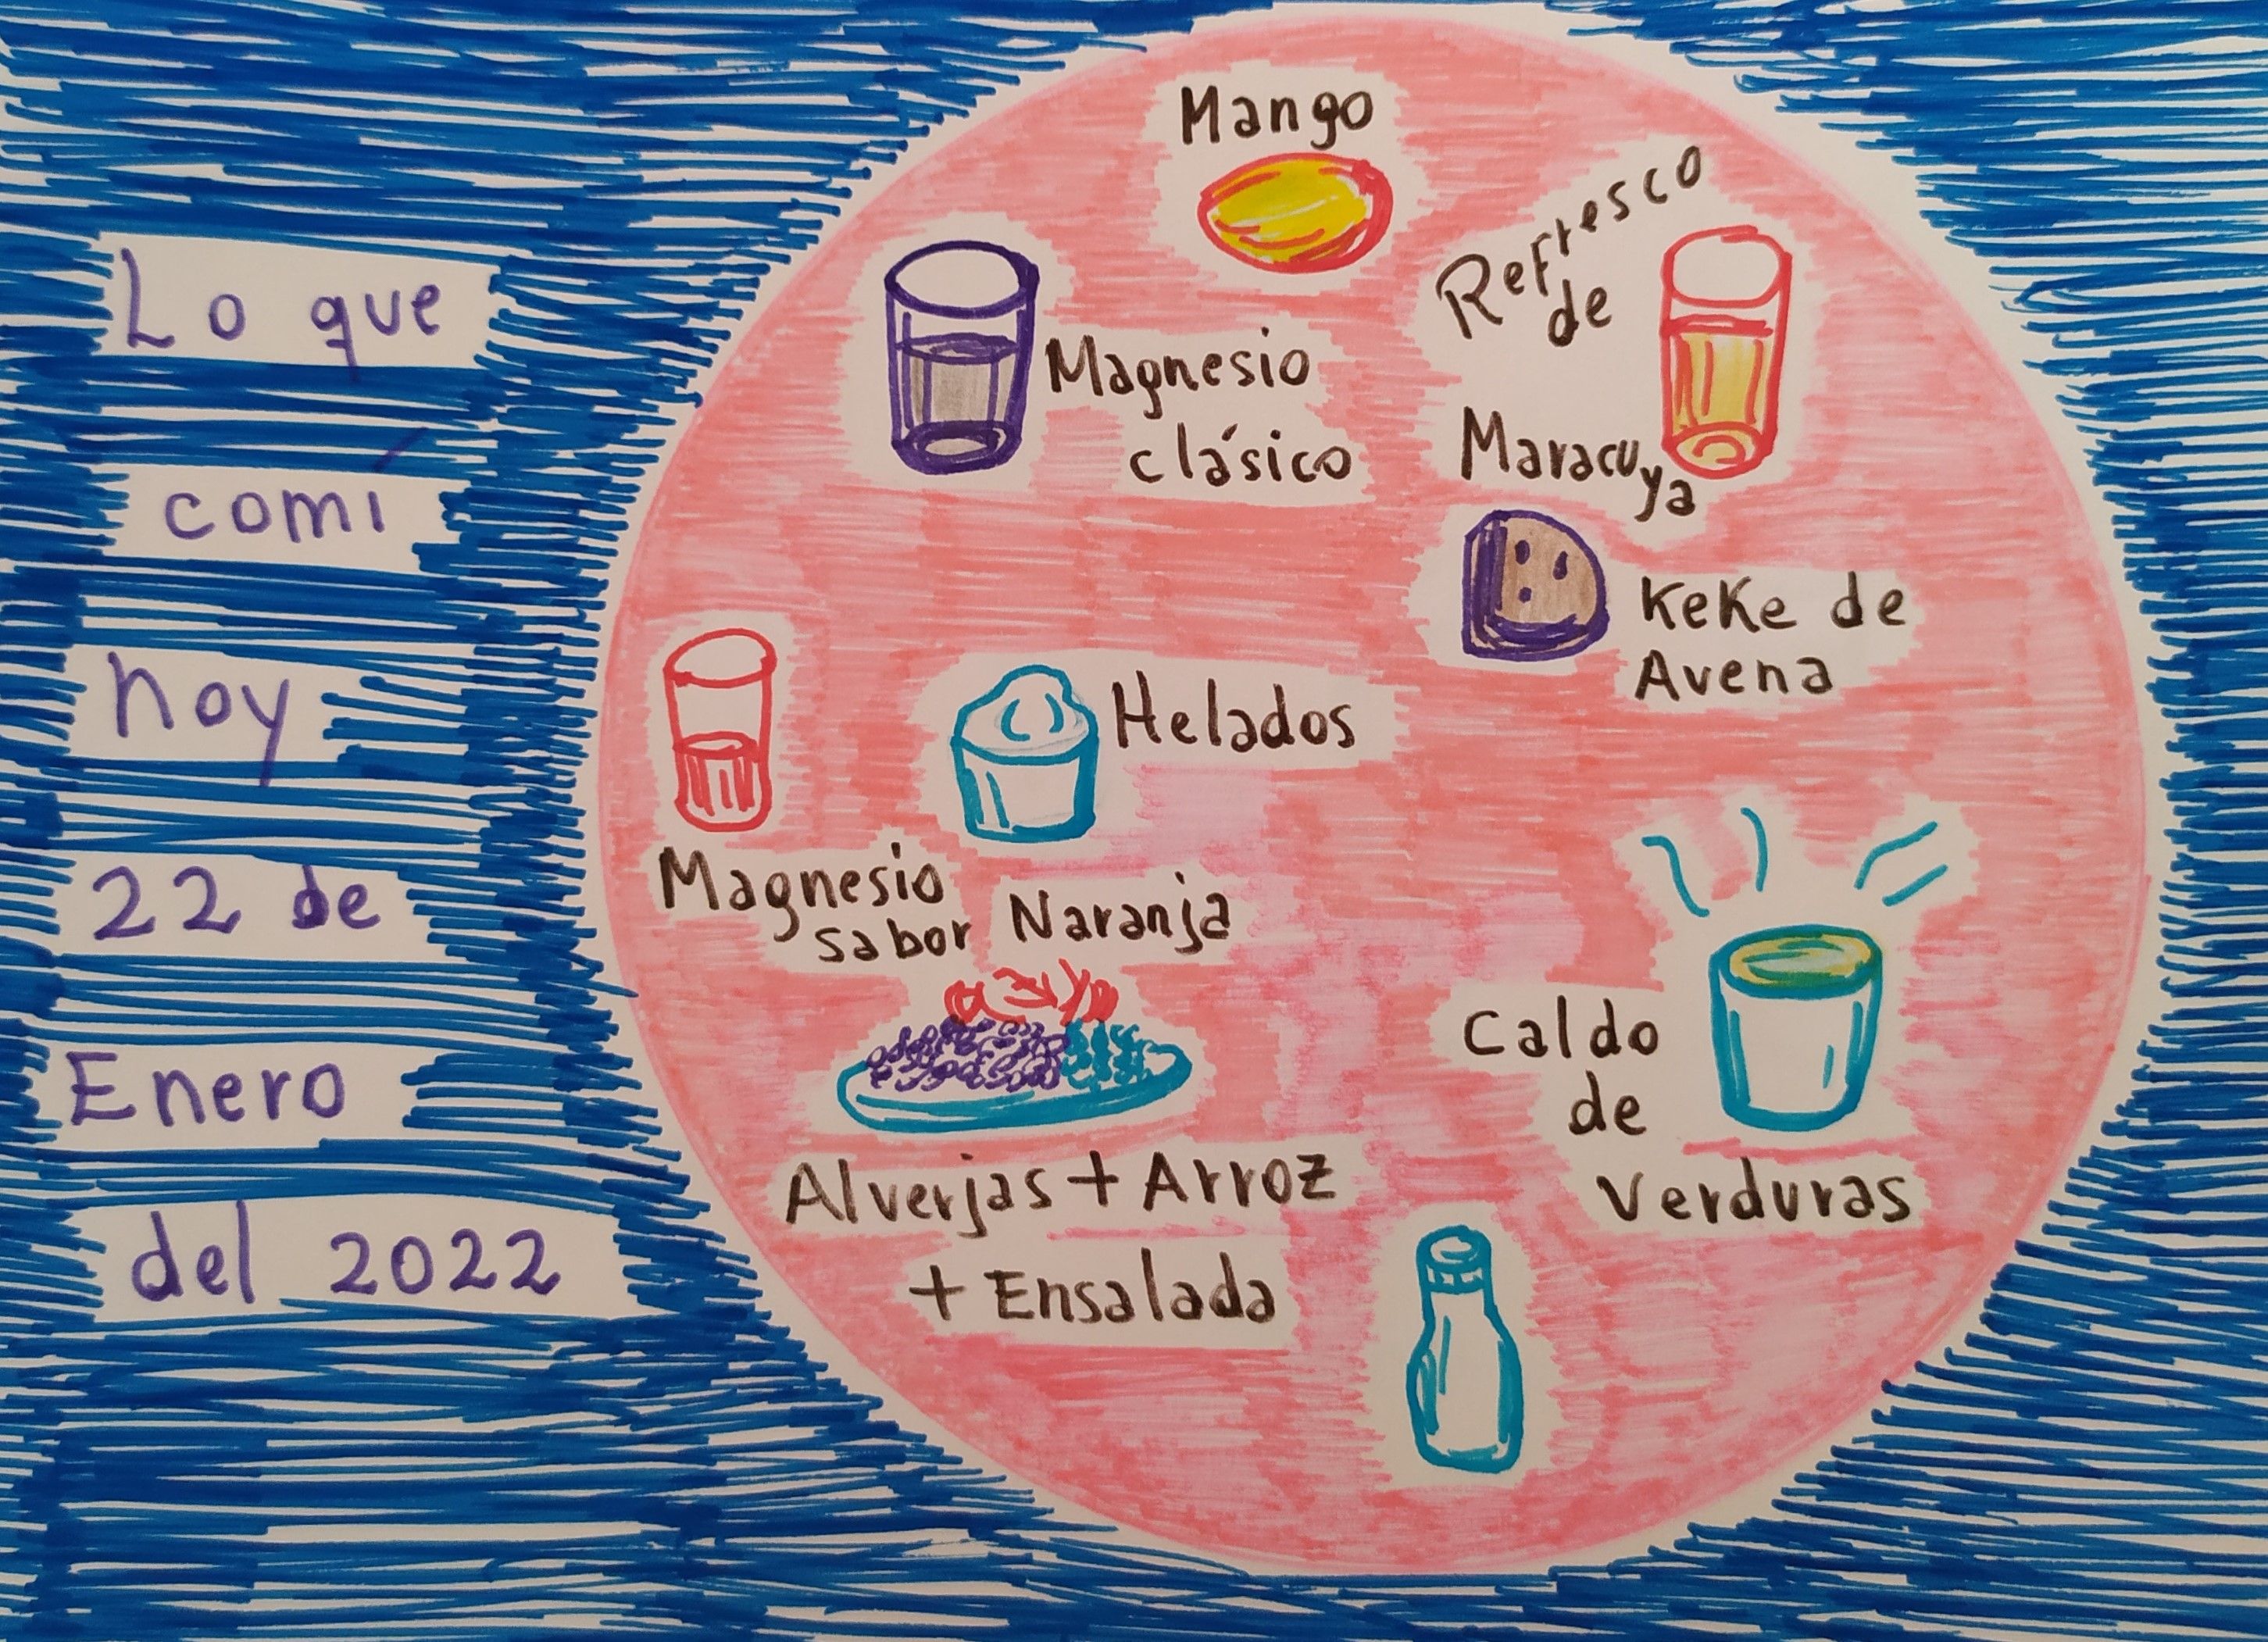 Lo que
comí
hoy
22 de
Enero
del 2022
Mango
Refresco
de
Maracuya
Magnesio
clásico
Keke de
Avena
Helados
Magnesio
sabor Naranja
Caldo
de
Verduras
Alverjas + Arroz
+ Ensalada